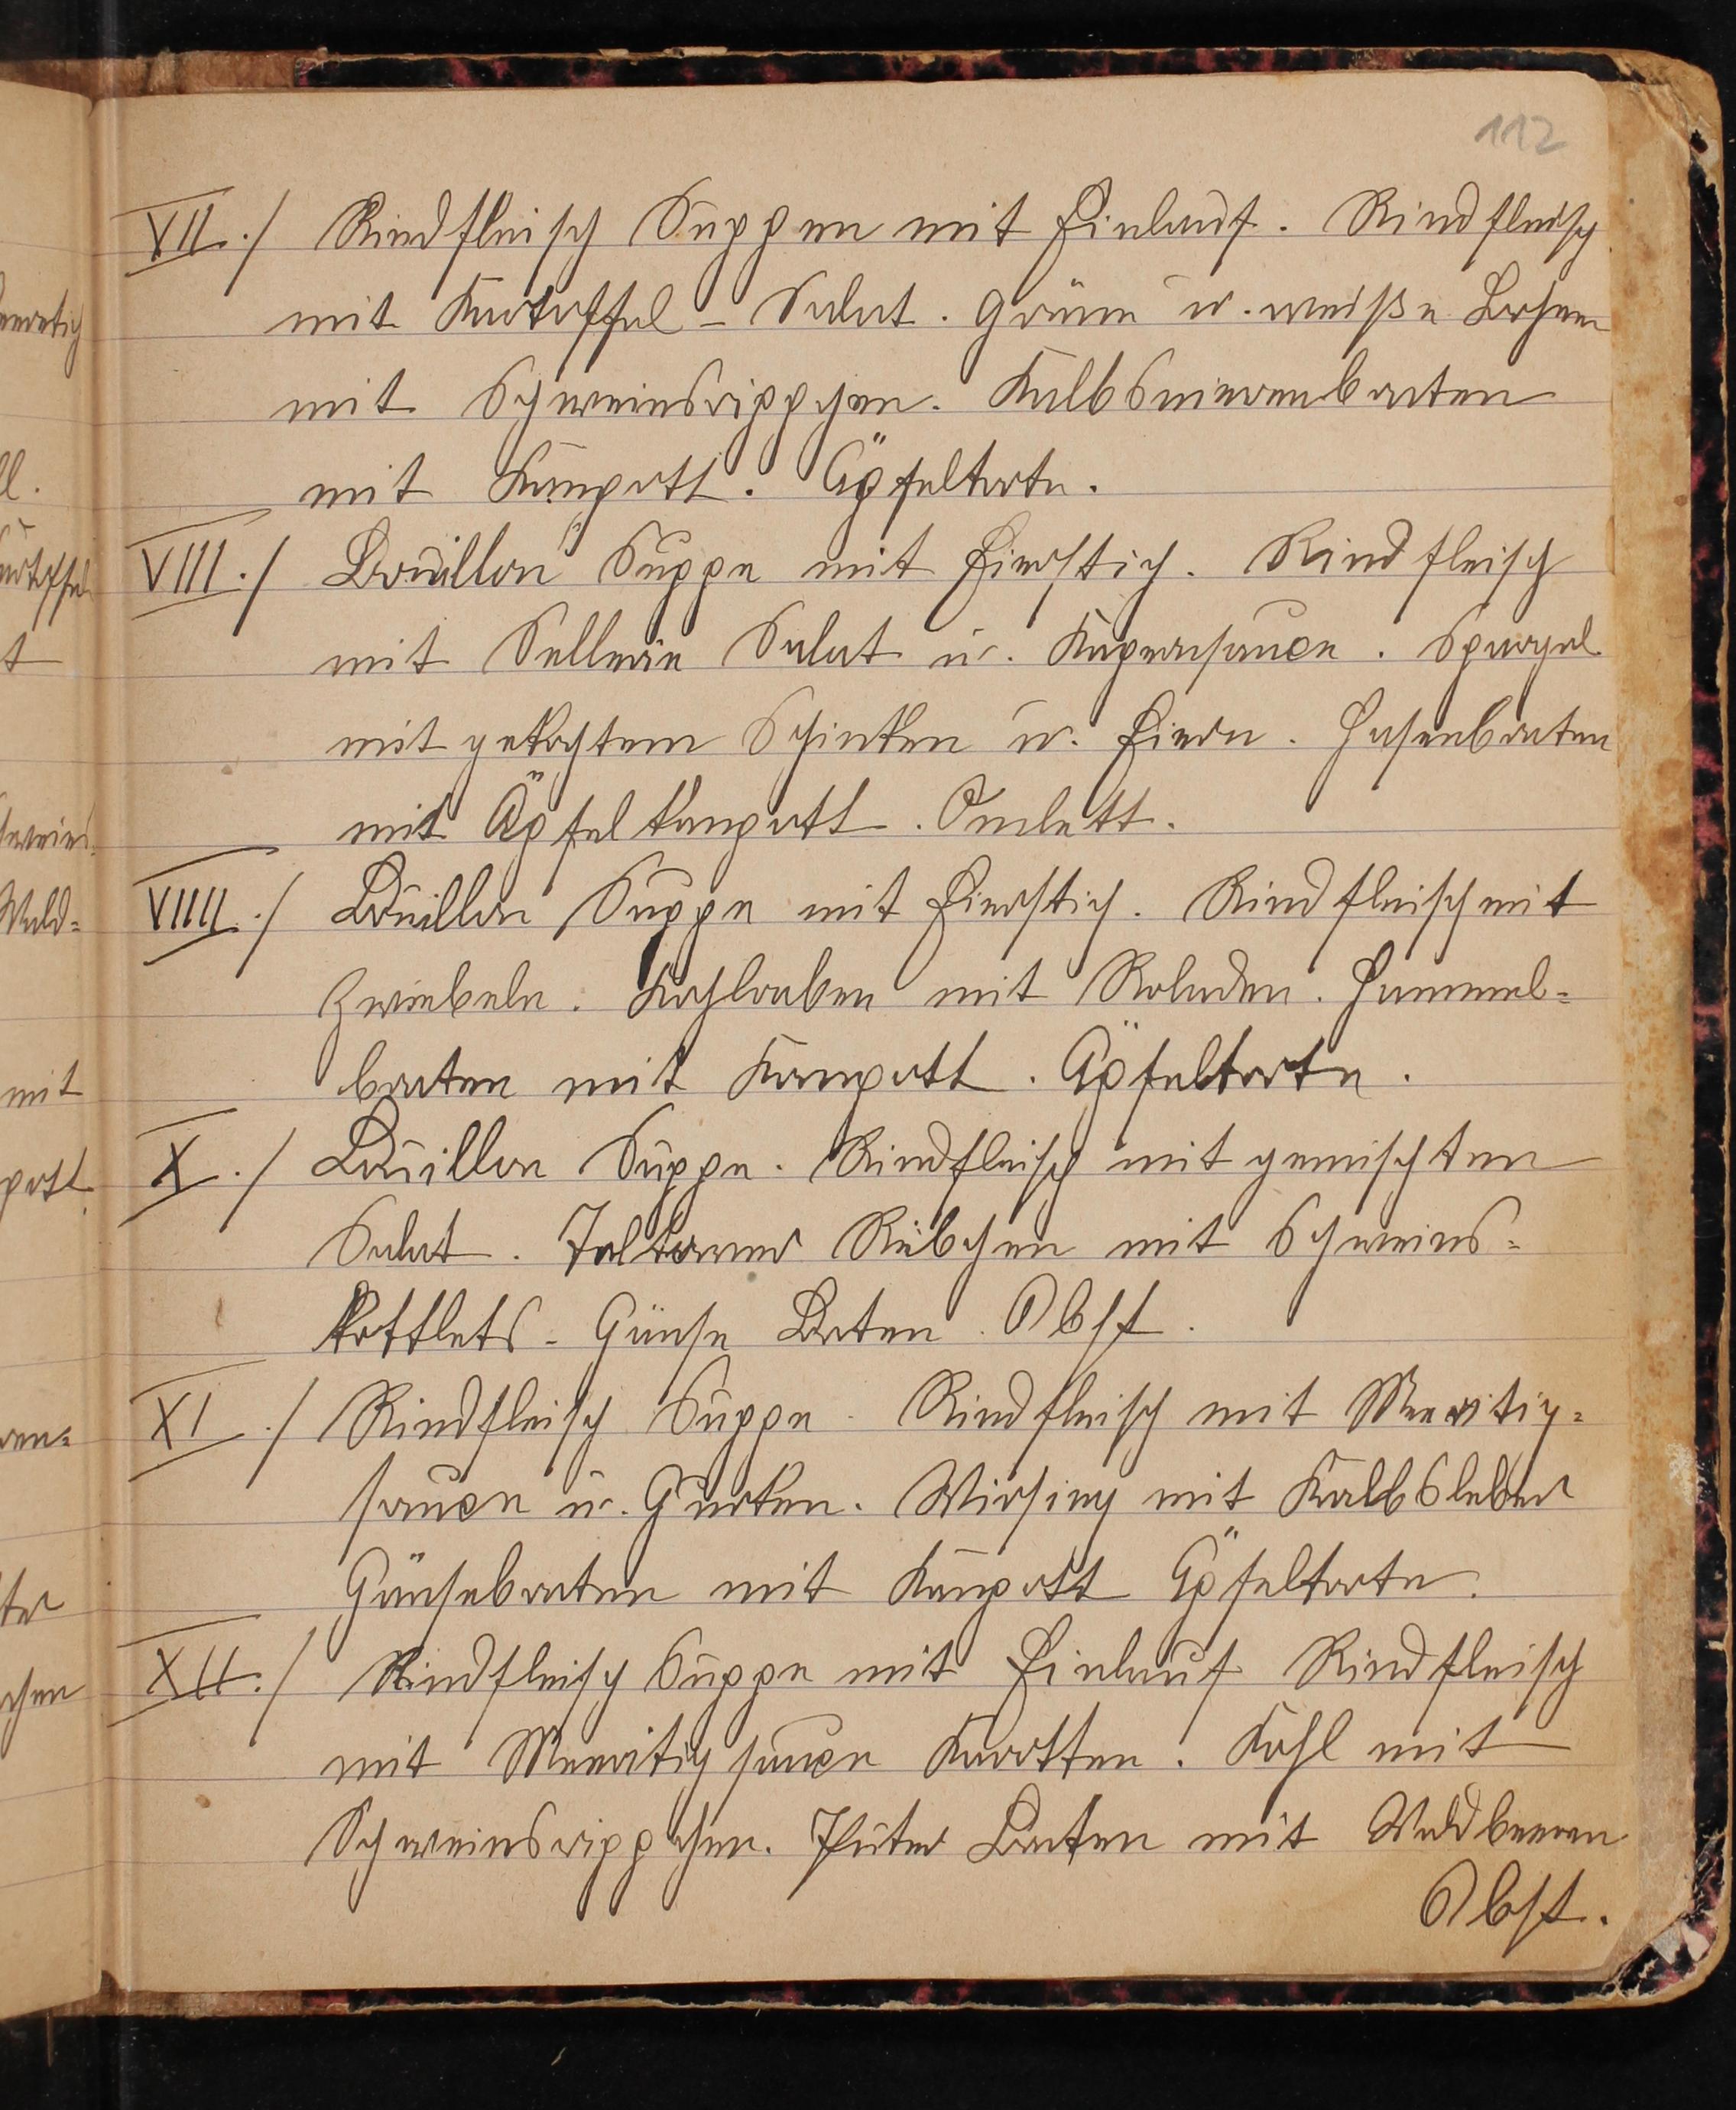 112
VII./ Rindfleisch Suppen mit Einlauf. Rindfleisch
mit Kartoffel-Salat. Grüne u. weiße Bohnen
mit Schweinsrippchen. Kalbsnierenbraten
mit Kompott. Äpfeltorte.
VIII./ Bouillon Suppe mit Eierstich. Rindfleisch
mit Sellerie Salat u. Kapernsauce. Spargel
mit gekochtem Schinken u. Eiern. Hasenbraten
mit Äpfelkompott. Omlett.
VIIII./ Bouillon Suppe mit Eierstich. Rindfleisch mit
Zwiebeln. Kohlraben mit Roladen. Hammel=
braten mit Kompott. Äpfeltorte.
X./ Bouillon Suppe. Rindfleisch mit gemischten
Salat. Teltower Rübchen mit Schweins=
kottlets- Gänse Braten. Obst.
XI./ Rindfleisch Suppe. Rindfleisch mit Meeritig=
sauce u. Gurken. Wirsing mit Kalbsleber
Gänsebraten mit Kompott Äpfeltorte.
XII./ Rindfleisch Suppe mit Einlauf Rindfleisch
mit Meeritigsauce Karotten. Kohl mit
Schweinsrippchen. Puter Braten mit Waldbeeren
Obst.